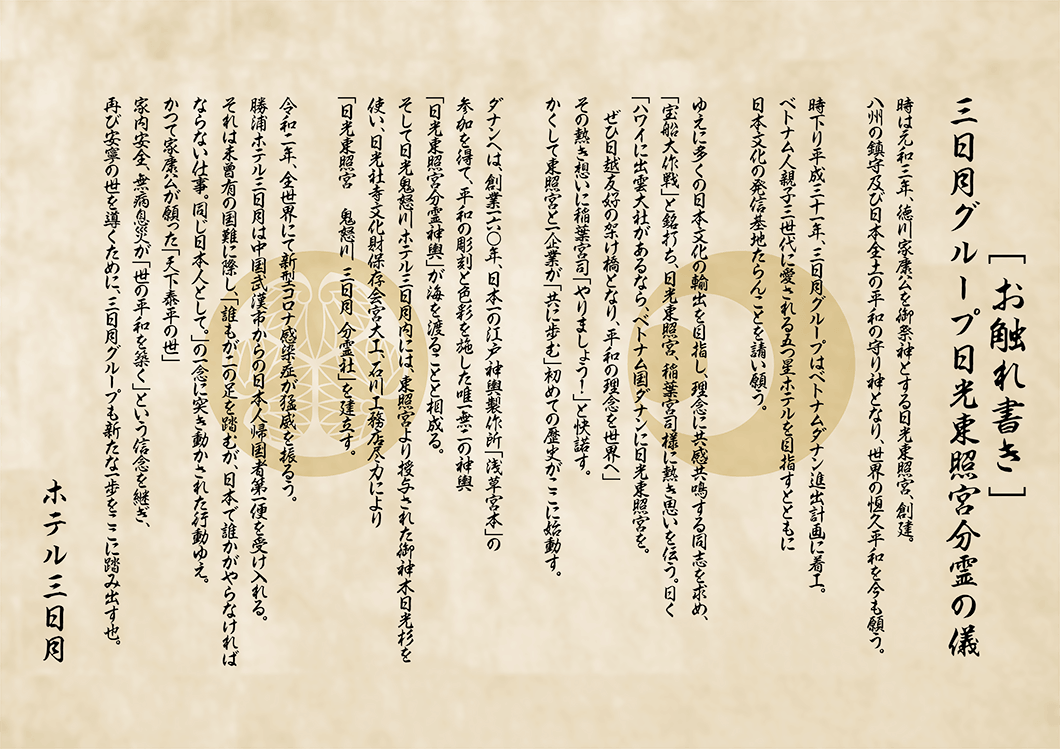 ［お触れ書き］
三日月グループ日光東照宮分霊の儀
時は元和三年、徳川家康公を御祭神とする日光東照宮、創建。
八州の鎮守及び日本全土の平和の守り神となり、世界の恒久平和を今も願う。
時下り平成三十一年、三日月グループはベトナムダナン進出計画に着工。
ベトナム人親子三世代に愛される五つ星ホテルを目指すとともに
日本文化の発信基地たらんことを請い願う。
ゆえに多くの日本文化の輸出を目指し、理念に共感共鳴する同志を求め、
「宝船大作戦」と銘打ち、日光東照宮、稲葉宮司様に熱き思いを伝う。曰く
「ハワイに出雲大社があるなら、ベトナム国ダナンに日光東照宮を。
ぜひ日越友好の架け橋となり、平和の理念を世界へ」
その熱き想いに稲葉宮司「やりましょう！」と快諾す。
かくして東照宮と一企業が「共に歩む」初めての歴史がここに始動す。
ダナンへは、創業一六〇年、日本一の江戸神輿製作所「浅草宮本」の
参加を得て、平和の彫刻と色彩を施した唯一無二の神輿
「日光東照宮分霊神輿」が海を渡ることと相成る。
そして日光鬼怒川ホテル三日月内には、東照宮より授与された御神木日光杉を
使い、日光社寺文化財保存会宮大工、石川工務店尽力により
「日光東照宮　鬼怒川　三日月　分霊社」を建立す。
令和二年、全世界にて新型コロナ感染症が猛威を振るう。
勝浦ホテル三日月は中国武漢市からの日本人帰国者第一便を受け入れる。
それは未曾有の国難に際し、「誰もが二の足を踏むが、日本で誰かがやらなければ
ならない仕事。同じ日本人として。」の念に突き動かされた行動ゆえ。
かつて家康公が願った「天下泰平の世」
家内安全、無病息災が「世の平和を築く」という信念を継ぎ、
再び安寧の世を導くために、三日月グループも新たな一歩をここに踏み出す也。
ホテル三日月